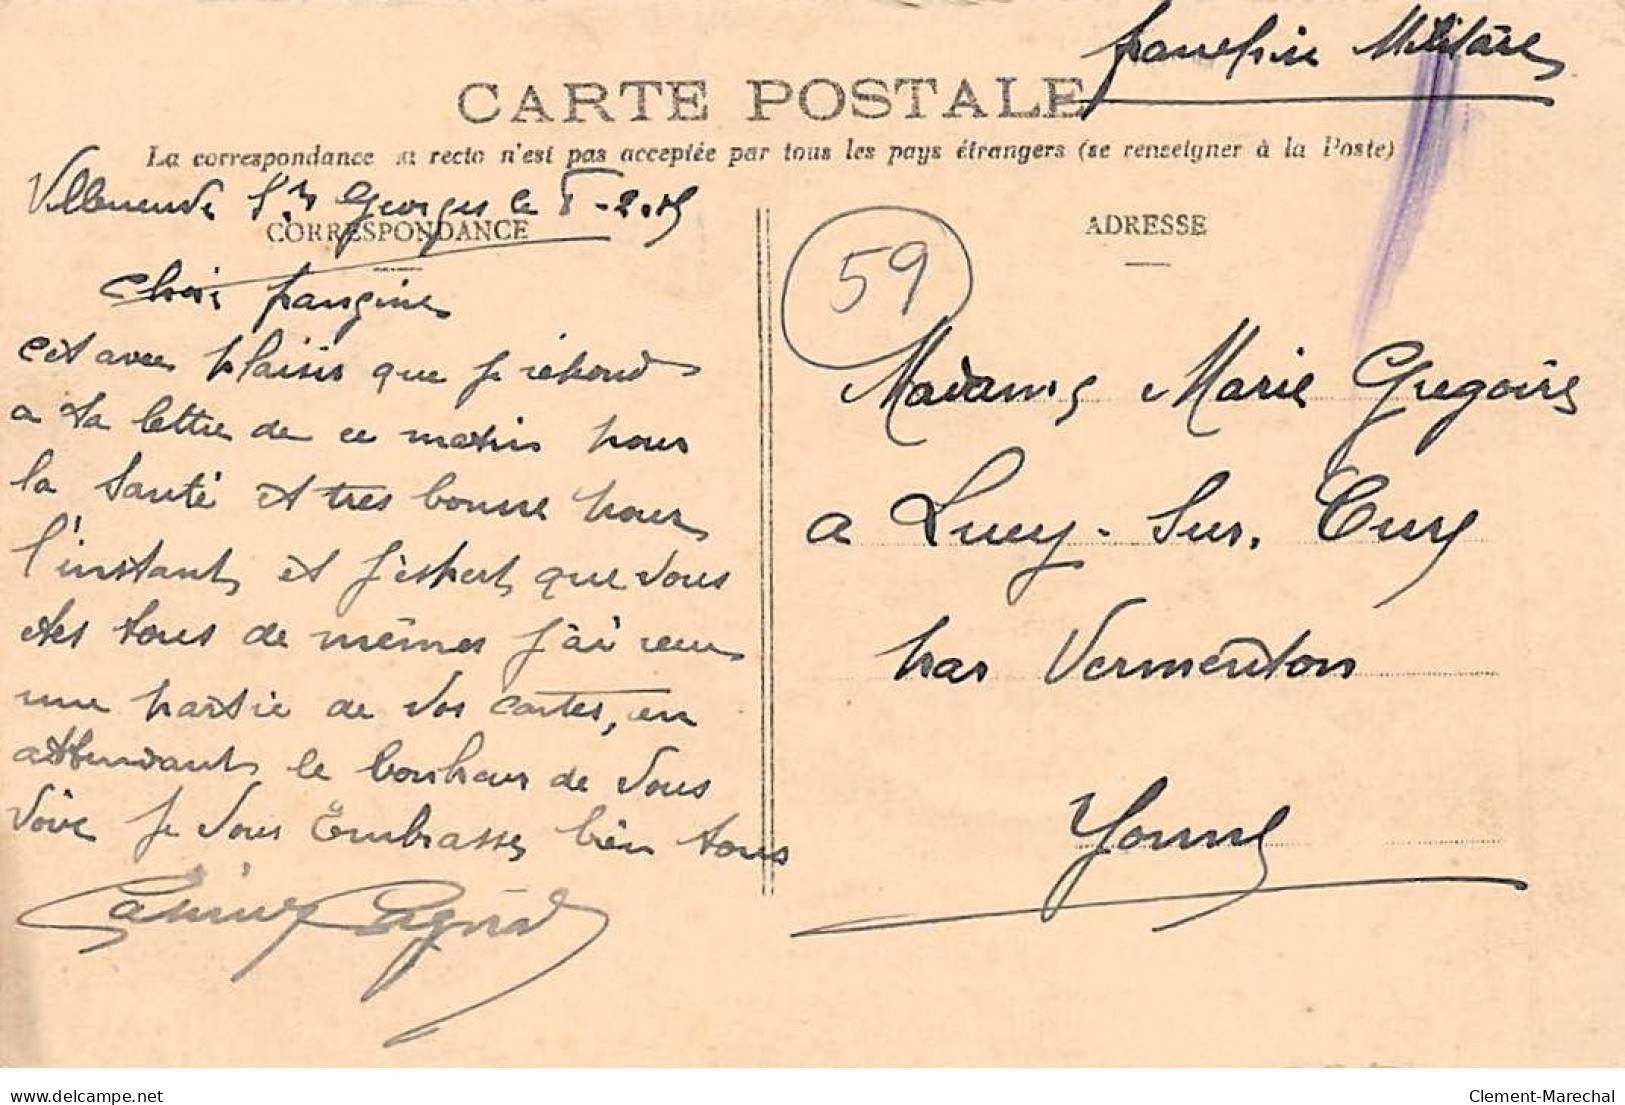 franchise Militaire
CARTE POSTALE
La correspondance au recto n'est pas acceptée par tous les pays étrangers (se renseigner à la Poste)
Villeneuve St Georges le 2.15
CORRESPONDANCE
Cher frangine
cet avec plaisir que je répond
a ta lettre de ce matin pour
la santé et tres bonne pour
l'instant et j'espert que vous
etes tous de mêmes j'ai reçu
une partie de vos cartes, en
attendant le bonheur de vous
voire je vous Embrasse bien tous
Casimir
ADRESSE
59
Madame Marie Gregoire
a Lucy-Sur. Cure
par Vermenton
Yonne
delcampe.net
Clement-Marechal